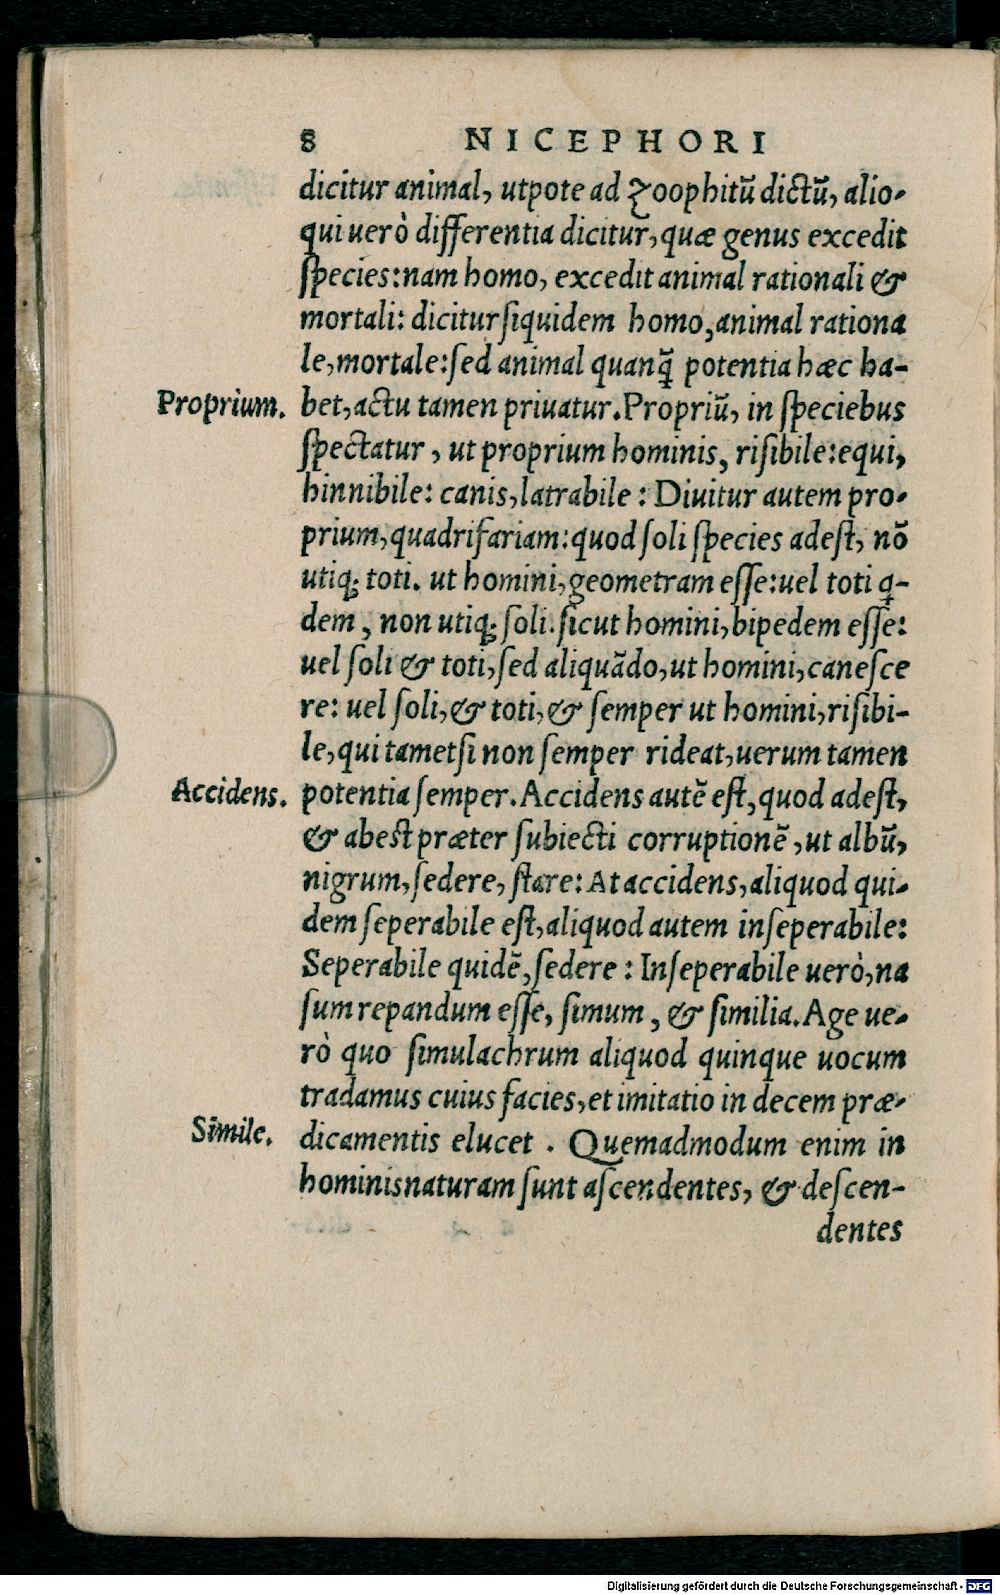 8 NICEPHORI
dicitur animal, utpote ad zoophitũ dictũ, alio-
qui uerò differentia dicitur, quæ genus excedit
ſpecies: nam homo, excedit animal rationali &
mortali: dicitur ſiquidem homo, animal rationa
le, mortale: ſed animal quanq̃ potentia hæc ha-
Proprium. bet, actu tamen priuatur. Propriũ, in ſpeciebus
ſpectatur, ut proprium hominis, riſibile: equi,
hinnibile: canis, latrabile: Diuitur autem pro-
prium, quadrifariam: quod ſoli ſpecies adeſt, nõ
utiq; toti. ut homini, geometram eſſe: uel toti q-
dem, non utiq; ſoli. ſicut homini, bipedem eſſe:
uel ſoli & toti, ſed aliquãdo, ut homini, caneſce
re: uel ſoli, & toti, & ſemper ut homini, riſibi-
le, qui tametſi non ſemper rideat, uerum tamen
Accidens. potentia ſemper. Accidens autẽ eſt, quod adeſt,
& abest præter ſubiecti corruptionẽ, ut albũ,
nigrum, ſedere, ſtare: At accidens, aliquod qui-
dem ſeperabile eſt, aliquod autem inſeperabile:
Seperabile quidẽ, ſedere: Inſeperabile uerò, na
ſum repandum eſſe, ſimum, & ſimilia. Age ue-
rò quo ſimulachrum aliquod quinque uocum
tradamus cuius facies, et imitatio in decem præ-
Simile. dicamentis elucet. Quemadmodum enim in
hominis naturam ſunt aſcendentes, & deſcen-
dentes
Digitalisierung gefördert durch die Deutsche Forschungsgemeinschaft - DFG